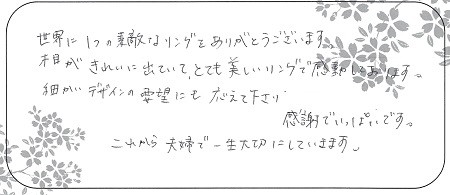 世界に1つの素敵なリングをありがとうございます。
木目がきれいに出ていて、とても美しいリングで感動しております。
細かいデザインの要望にも応えて下さり
感謝でいっぱいです。
これから夫婦で一生大切にしていきます。